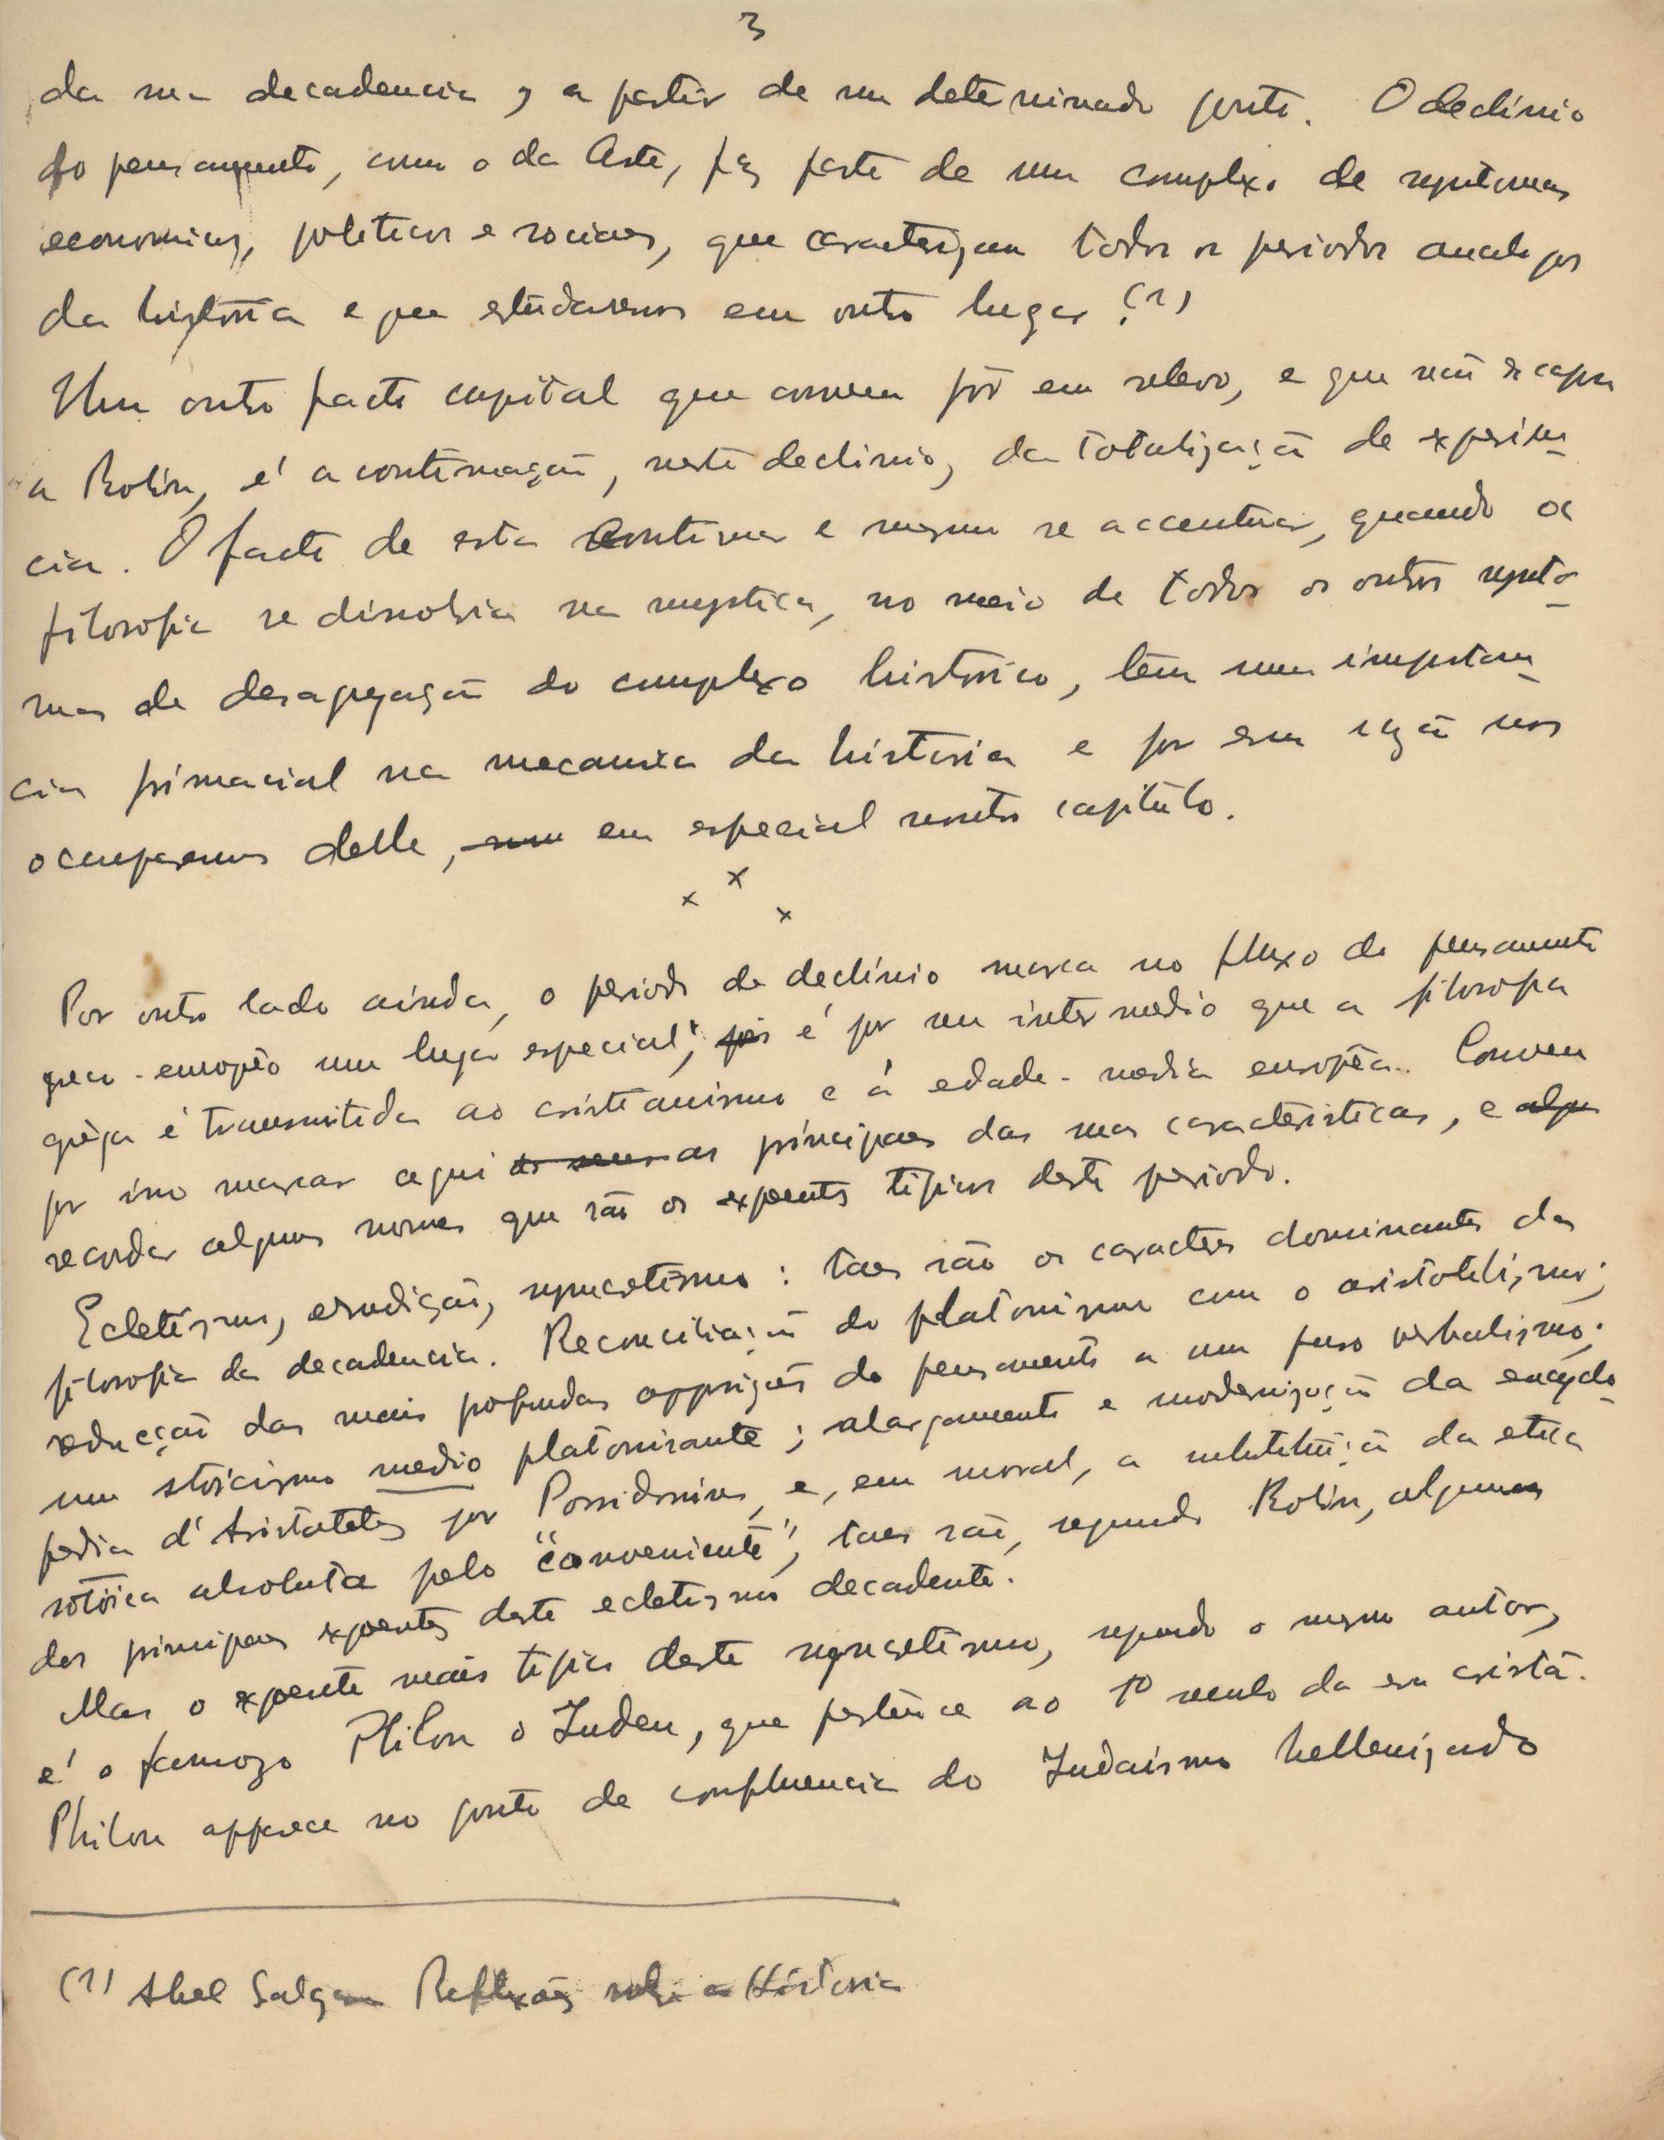 3
da sua decadencia, a partir de um determinado ponto. O declínio
do pensamento, como o da Arte, faz parte de um complexo de syntomas
economicos, politicos e sociaes, que caracterizam todos os periodos analogos
da história e que estudaremos em outro lugar. (1)
Um outro facto capital que convem pôr em relevo, e que não escapou
a Robin, é a continuação, neste declinio, da totalização de experien-
cia. O facto de esta continuar e mesmo se accentuar, quando a
filosofia se dissolvia na mystica, no meio de todos os outros synto-
mas de desagregação do complexo histórico, têm uma importan-
cia primacial na mecanica da historia e por essa razão nos
occuparemos delle, em especial noutro capítulo.
x x x
Por outro lado ainda, o periodo de declínio marca no fluxo do pensamento
greco-europêo um lugar especial; pois é por seu intermedio que a filosofia
grêga é transmitida ao cristianismo e á edade-media europêa. Convem
por isso marcar aqui as principaes das suas caracteristicas, e
recordar alguns nomes que são os expoentes típicos deste periodo.
Ecletismo, erudição, syncretismo: taes são os caracteres dominantes da
filosofia da decadencia. Reconciliação do platonismo com o aristotelismo;
reducção das mais profundas opposições do pensamento a um puro verbalismo;
um stoicismo medio platonisante; alargamento e modernização da encyclo-
pedia d'Aristoteles por Possidonius, e, em moral, a substituição da etica
stóica absoluta pelo "conveniente", taes são, segundo Robin, algumas
dos principaes expoentes deste ecletismo decadente.
Mas o expoente mais tipico deste syncretismo, segundo o mesmo autor,
é o famozo Philon o Judeu, que pertence ao 1º seculo da era cristã.
Philon apparece no ponto de confluencia do Judaísmo hellenizado
(1) Abel Salazar Reflexões sobre a História